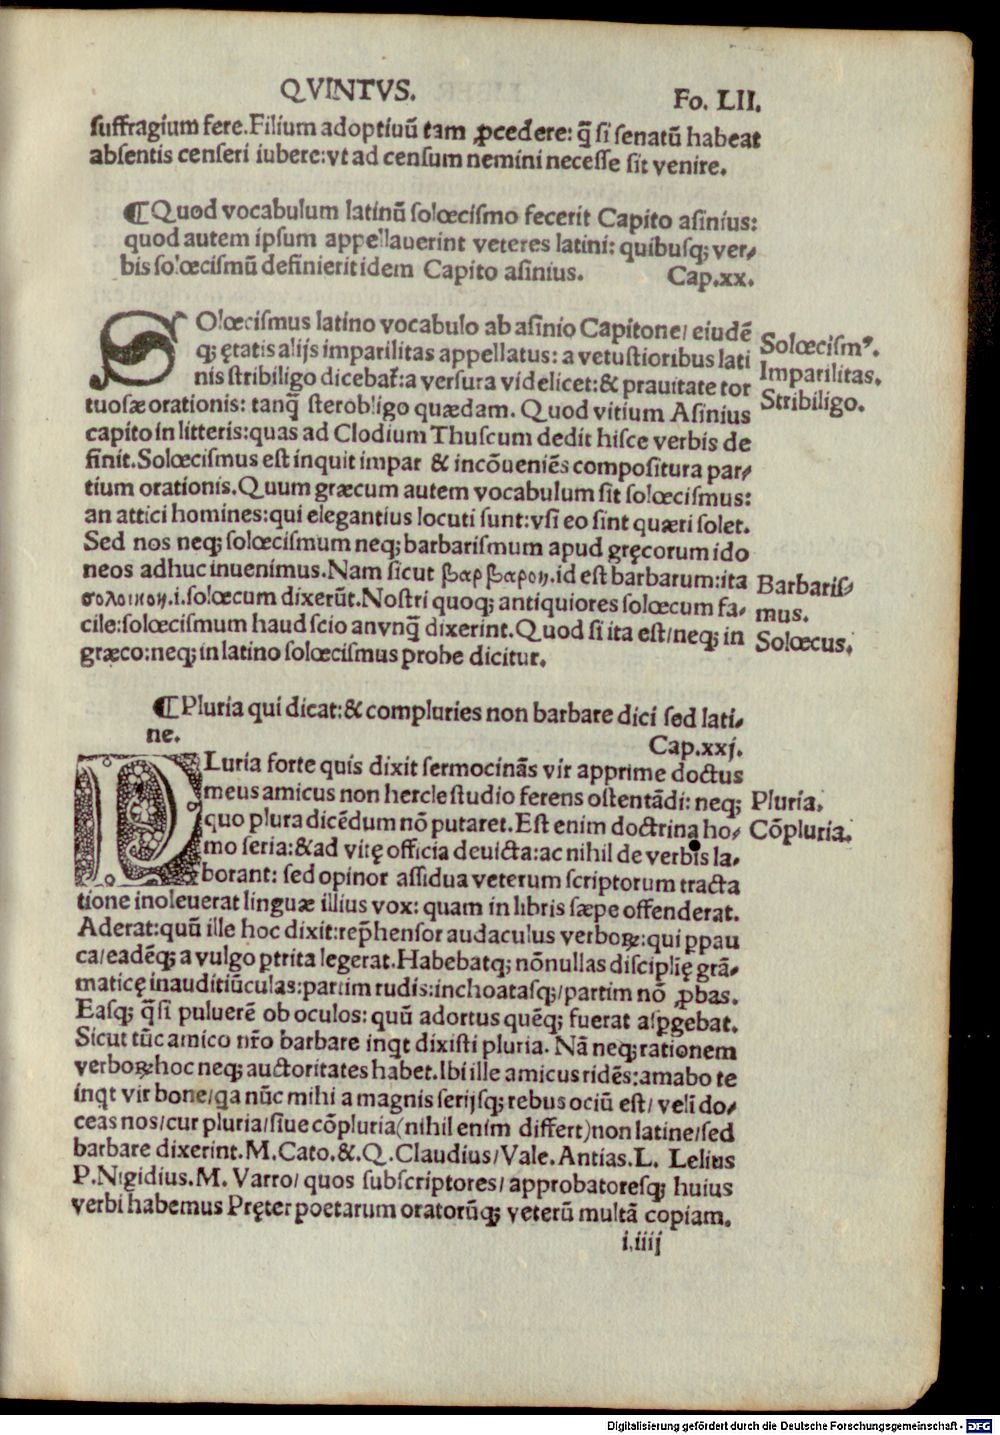 QVINTVS.
Fo. LII.
suffragium fere. Filium adoptiuū tam ꝓcedere: q̄ si senatū habeat
absentis censeri iubere: vt ad censum nemini necesse sit venire.
¶ Quod vocabulum latinū solœcismo fecerit Capito asinius:
quod autem ipsum appellauerint veteres latini: quibusq; ver⸗
bis solœcismū definierit idem Capito asinius. Cap.xx.
SOlœcismus latino vocabulo ab asinio Capitone/ eiudē
q; ętatis alijs imparilitas appellatus: a vetustioribus lati
nis stribiligo dicebat᷑: a versura videlicet: & prauitate tor
tuosæ orationis: tanq̄ sterobligo quædam. Quod vitium Asinius
capito in litteris: quas ad Clodium Thuscum dedit hisce verbis de
finit. Solœcismus est inquit impar & incōueniēs compositura par⸗
tium orationis. Quum græcum autem vocabulum sit solœcismus:
an attici homines: qui elegantius locuti sunt: vsi eo sint quæri solet.
Sed nos neq; solœcismum neq; barbarismum apud gręcorum ido
neos adhuc inuenimus. Nam sicut βαρβαρον. id est barbarum: ita
σολοικον. i. solœcum dixerūt. Nostri quoq; antiquiores solœcum fa⸗
cile: solœcismum haud scio an vnq̄ dixerint. Quod si ita est/ neq; in
græco: neq; in latino solœcismus probe dicitur.
Solœcismꝰ.
Imparilitas.
Stribiligo.
Barbaris⸗
mus.
Solœcus.
¶ Pluria qui dicat: & compluries non barbare dici sed lati⸗
ne. Cap.xxj.
PLuria forte quis dixit sermocinās vir apprime doctus
meus amicus non hercle studio ferens ostentādi: neq;
quo plura dicēdum nō putaret. Est enim doctrina ho⸗
mo seria: & ad vitę officia deuicta: ac nihil de verbis la⸗
borant: sed opinor assidua veterum scriptorum tracta
tione inoleuerat linguæ illius vox: quam in libris sæpe offenderat.
Aderat: quū ille hoc dixit: rep̄hensor audaculus verboꝝ: qui ꝑpau
ca/ eadēq; a vulgo ꝑtrita legerat. Habebatq; nōnullas disciplię grā⸗
maticę inauditiūculas: partim rudis: inchoatasq;/ partim nō ꝓbas.
Easq; q̄si puluerē ob oculos: quū adortus quēq; fuerat aspꝑgebat.
Sicut tūc amico nr̄o barbare inqt dixisti pluria. Nā neq; rationem
verboꝝ hoc neq; auctoritates habet. Ibi ille amicus ridēs: amabo te
inqt vir bone/ qa nūc mihi a magnis serijsq; rebus ociū est/ veli do⸗
ceas nos/ cur pluria/ siue cōpluria (nihil enim differt) non latine/ sed
barbare dixerint. M. Cato. &. Q. Claudius/ Vale. Antias. L. Lelius
P. Nigidius. M. Varro/ quos subscriptores/ approbatoresq; huius
verbi habemus Pręter poetarum oratorūq; veterū multā copiam.
Pluria.
Cōpluria.
i.iiij
Digitalisierung gefördert durch die Deutsche Forschungsgemeinschaft - DFG